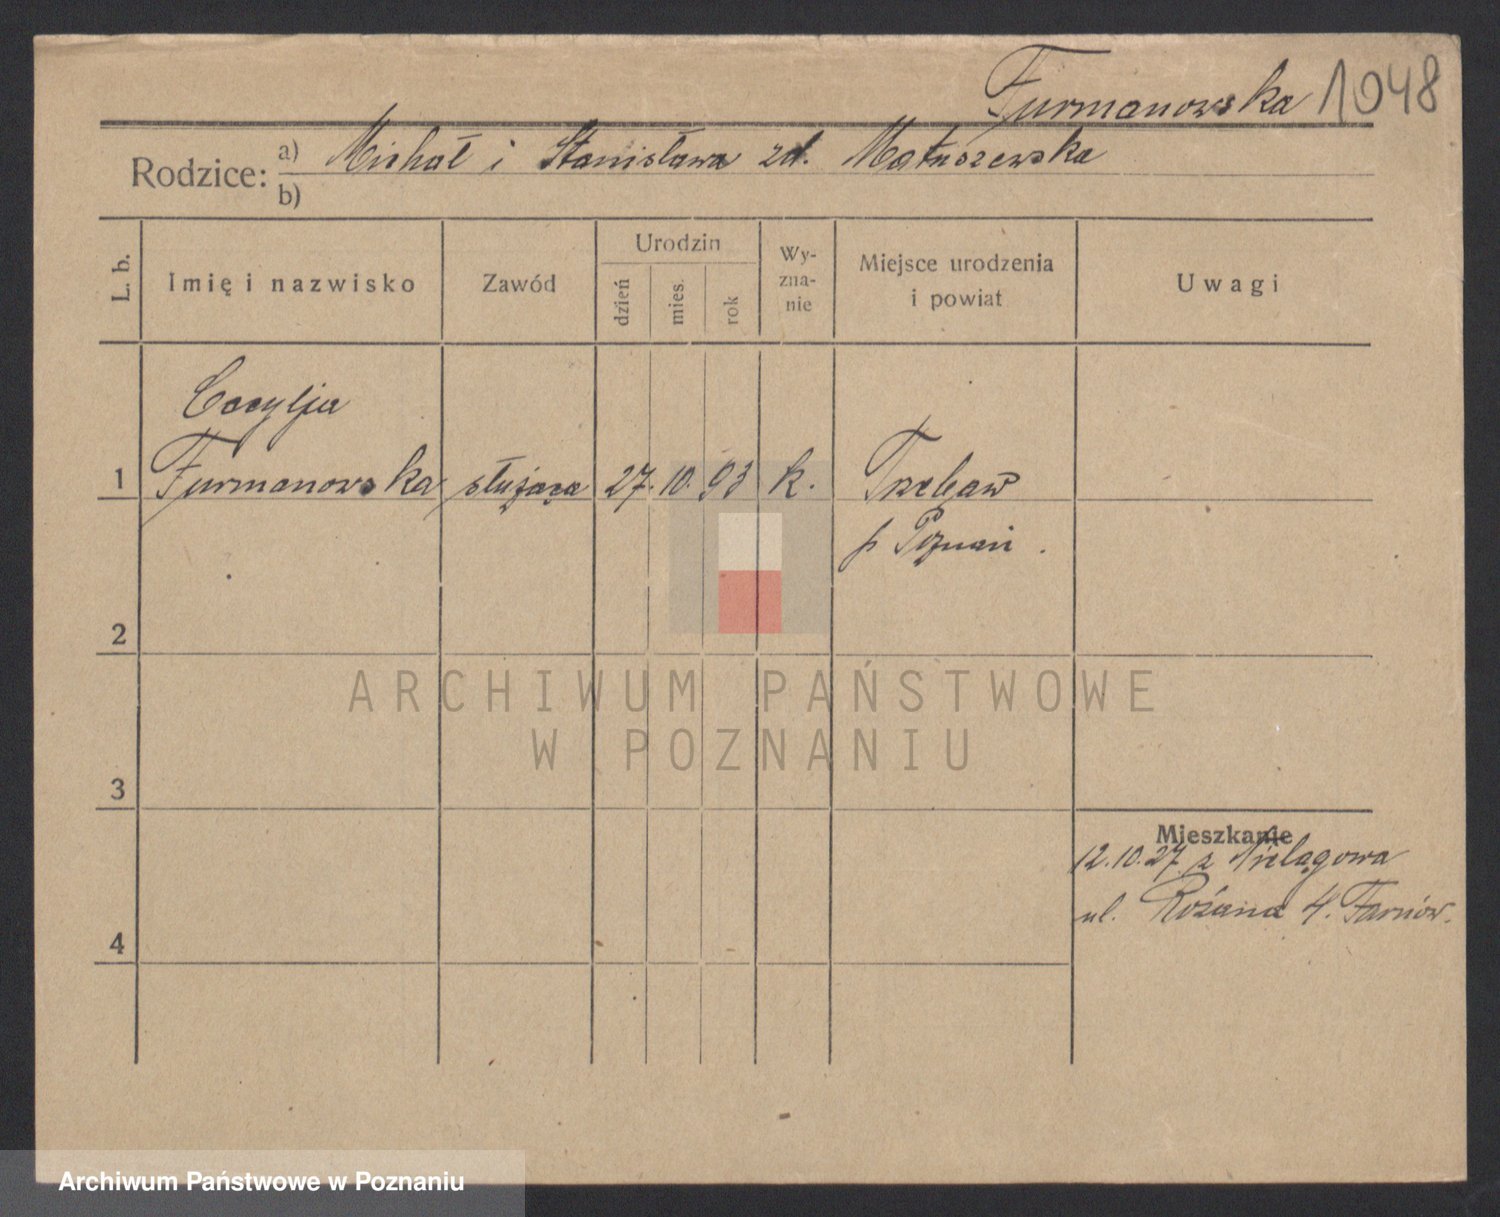 Furmanowska 1048
Rodzice: a) Michał i Stanisława zd. Matuszewska
b)
L. b.
Imię i nazwisko
Zawód
Urodzin
dzień
mies.
rok
Wy-
zna-
nie
Miejsce urodzenia
i powiat
Uwagi
Cecylja
1 Furmanowska służąca 27. 10. 93 k. Trzebaw
p Poznań .
2
ARCHIWUM PAŃSTWOWE
W POZNANIU
3
Mieszkanie
12.10.27 z
ul. Różana 4.
4
Archiwum Państwowe w Poznaniu